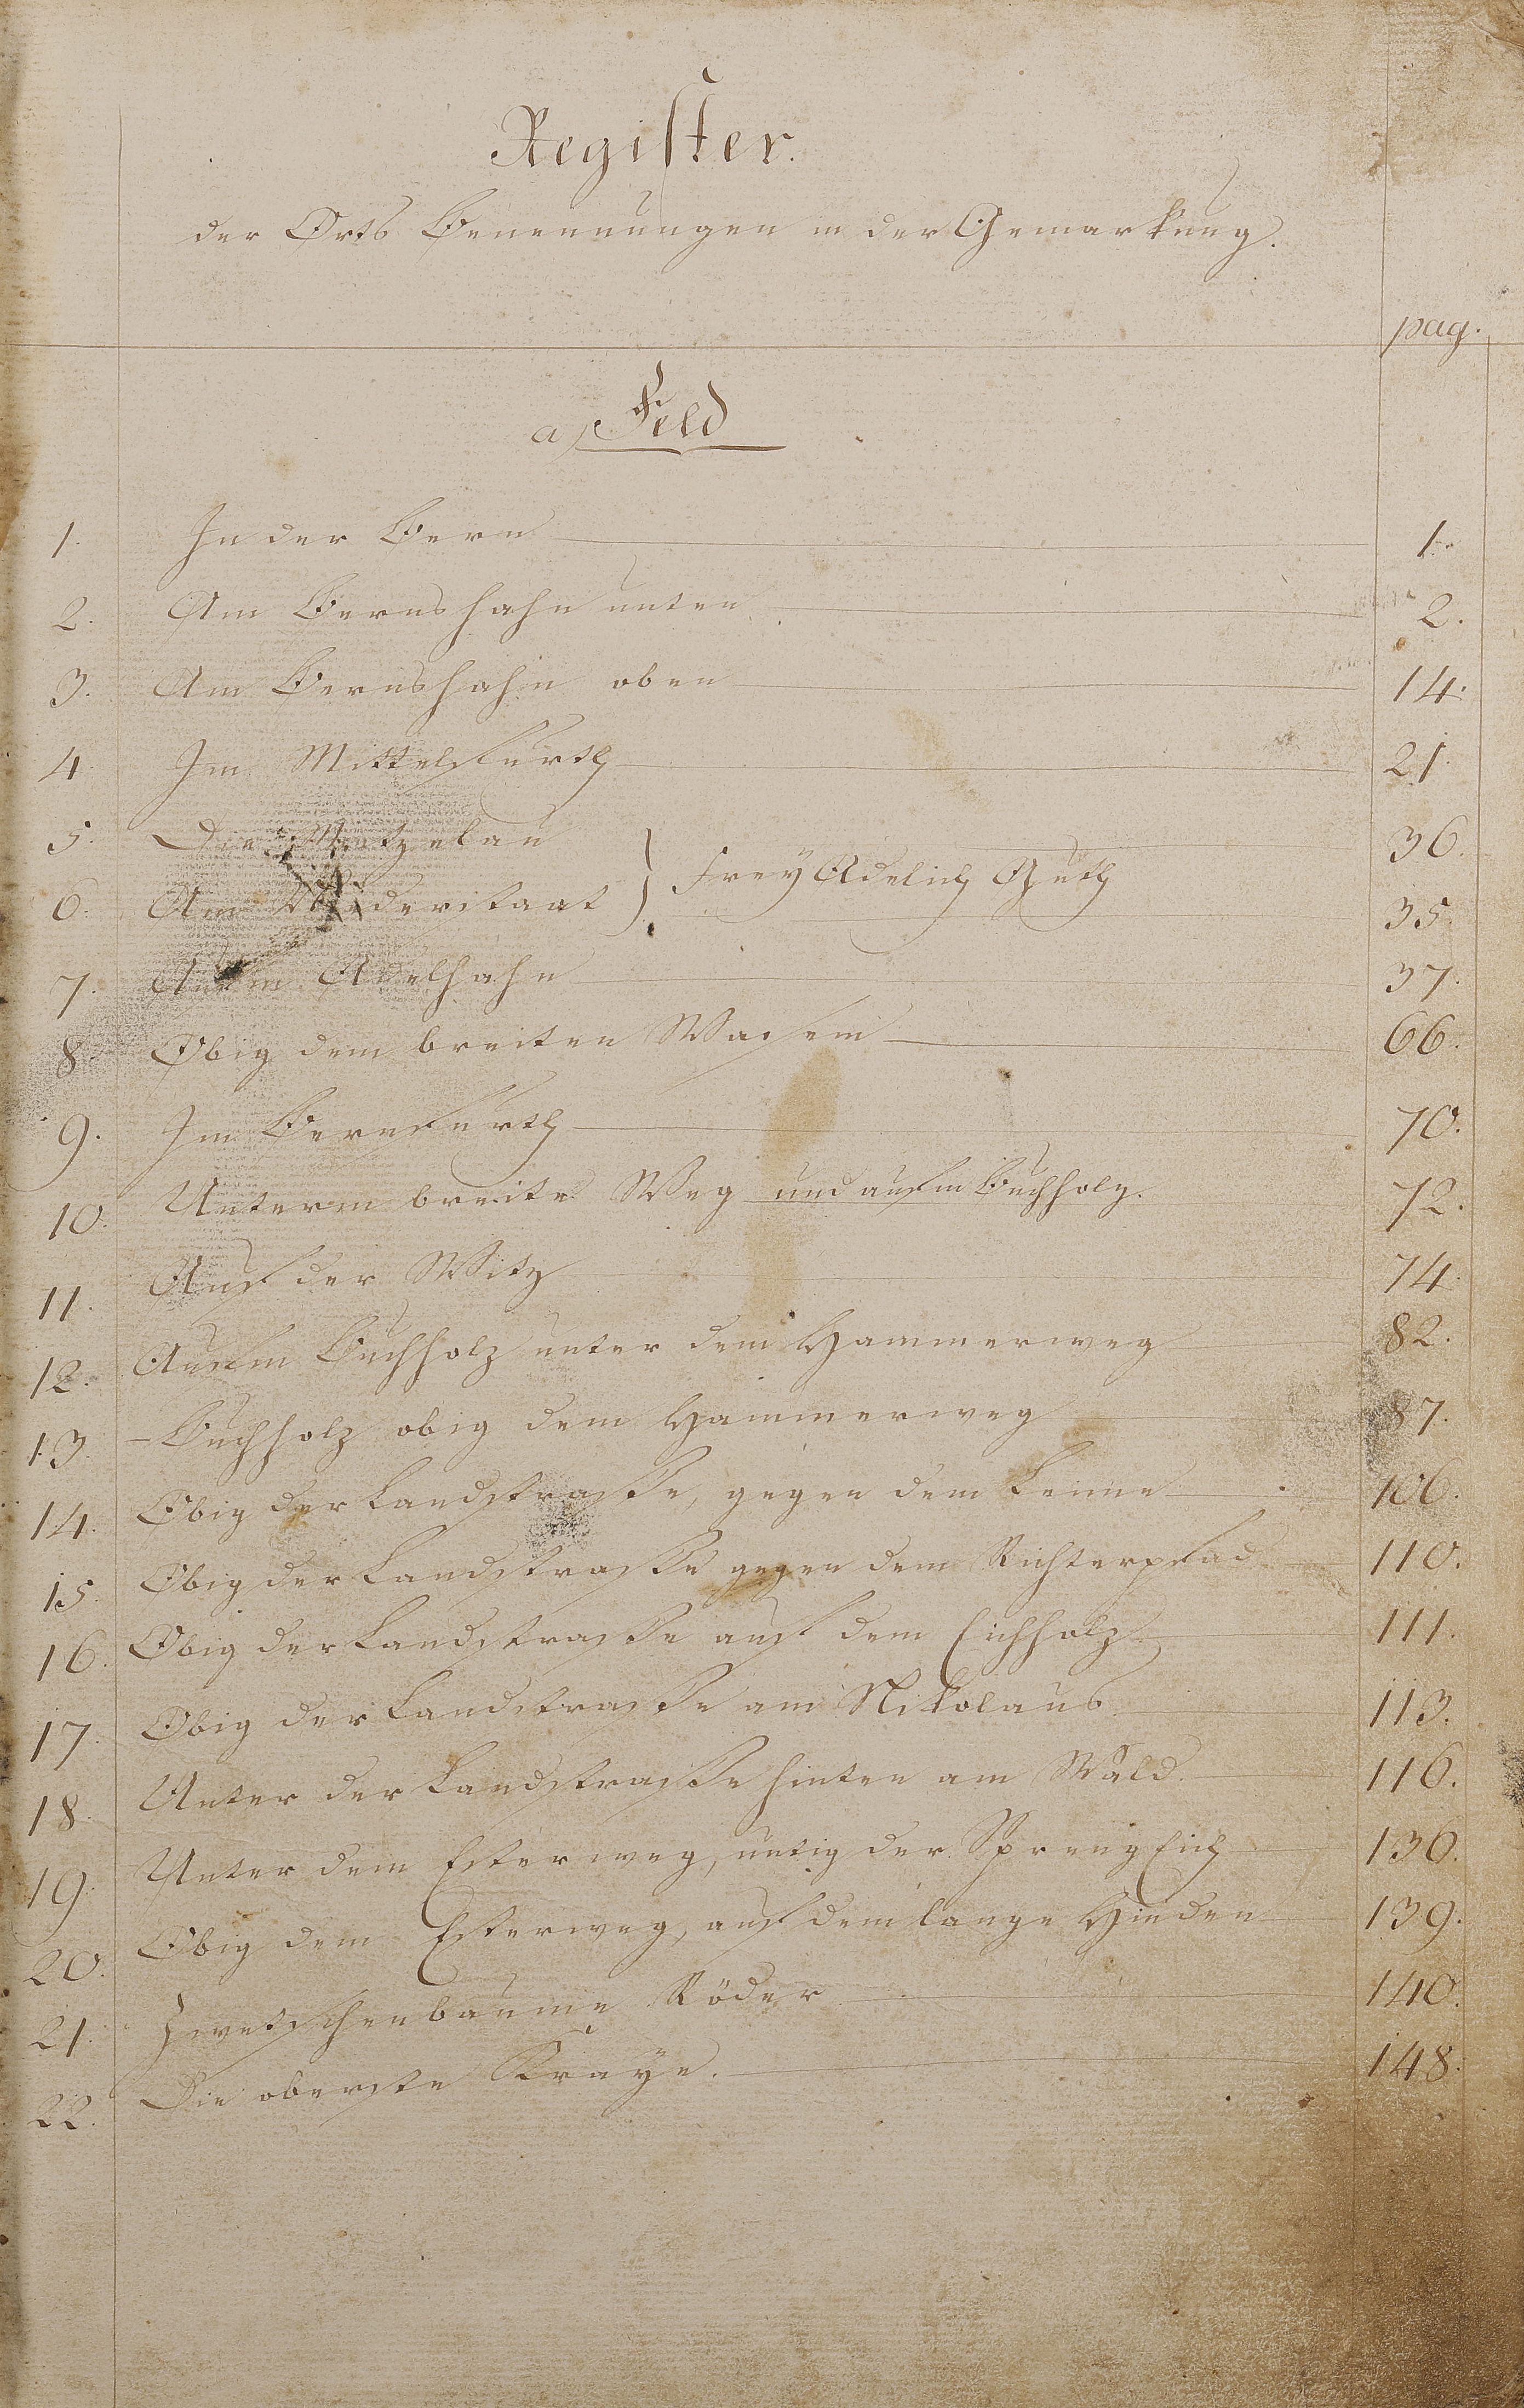 Register.
der Orts Benennungen in der Gemarkung.
pag.
a, Feld
1. In der Bern 1.
2. Am Bernshahn unten 2.
3. Am Bernshahn oben 14.
4 Im Mittelfurth 21.
5. Die Metzelau 36.
Frey Adelich Guth
6. Am Niderstaat 35.
7. Auf'm Adelhahn 37.
8. Obig dem breiten Wasem 66.
9. Im Bernfurth 70.
10. Unterm breite Weg und auf'm Buchholz. 72.
11. Auf der Witz 74.
12. Auf'm Buchholz unter dem Hammerweg 82.
13. – Buchholz obig dem Hammerweg 87.
14. Obig der Landstrasse, gegen dem Leime 106.
15. Obig der Landstrasse gegen dem Richterpfad 110.
16. Obig der Landstrasse auf dem Eichholz 111.
17. Obig der Landstrasse am Nikolaus 113.
18. Unter der Landstrasse hinten am Wald. 116.
19. Unter dem Esterweg, untig der Spreng Eich 136.
20. Obig dem Esterweg, auf dem lange 139.
21. Zwetschenbäume Röder 140.
22. Die oberste 148.